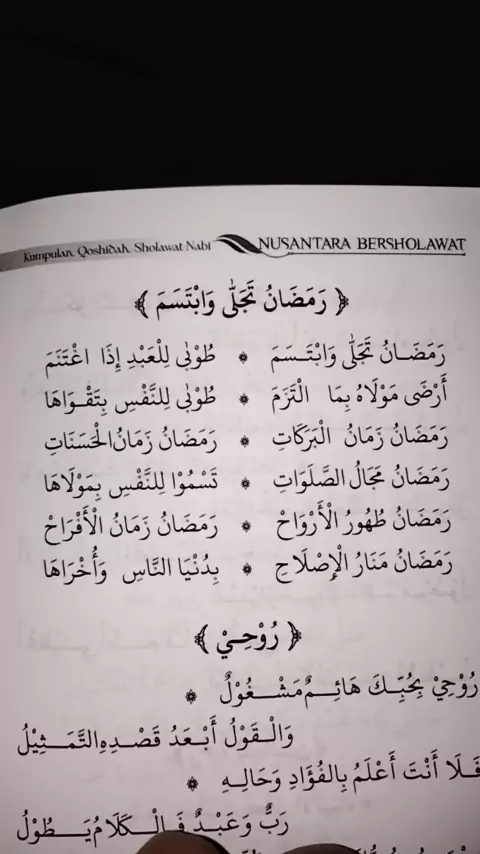 Kumpulan Qoshidah Sholawat Nabi NUSANTARA BERSHOLAWAT
﴿ رَمَضَانُ تَجَلَّى وَابْتَسَمَ ﴾
رَمَضَـانُ تَجَلَّى وَابْتَـسَمَ ۞ طُوْبٰى لِلْعَبْدِ إِذَا اغْتَنَمَ
أَرْضَى مَوْلَاهُ بِمَا الْتَزَمَ ۞ طُوْبٰى لِلنَّفْسِ بِتَقْـوَاهَا
رَمَضَانُ زَمَانُ الْبَرَكَاتِ ۞ رَمَضَانُ زَمَانُ الْحَسَنَاتِ
رَمَضَانُ مَجَالُ الصَّلَوَاتِ ۞ تَسْمُوْا لِلنَّفْسِ بِمَوْلَاهَا
رَمَضَانُ طُهُورُ الْأَرْوَاحْ ۞ رَمَضَانُ زَمَانُ الْأَفْرَاحْ
رَمَضَانُ مَنَارُ الْإِصْلَاحِ ۞ بِدُنْيَا النَّاسِ وَأُخْرَاهَا
﴿ رُوْحِيْ ﴾
رُوْحِيْ بِحُبِّـكَ هَائِـمٌ مَشْـغُوْلٌ ۞
وَالْـقَوْلُ أَبْـعَدُ قَصْـدِهِ التَّمْـثِيْلُ
فَـلَا أَنْتَ أَعْلَمُ بِالْفُؤَادِ وَحَالِـهِ ۞
رَبٌّ وَعَبْدٌ فَـالْـكَلَامُ يَـطُوْلُ